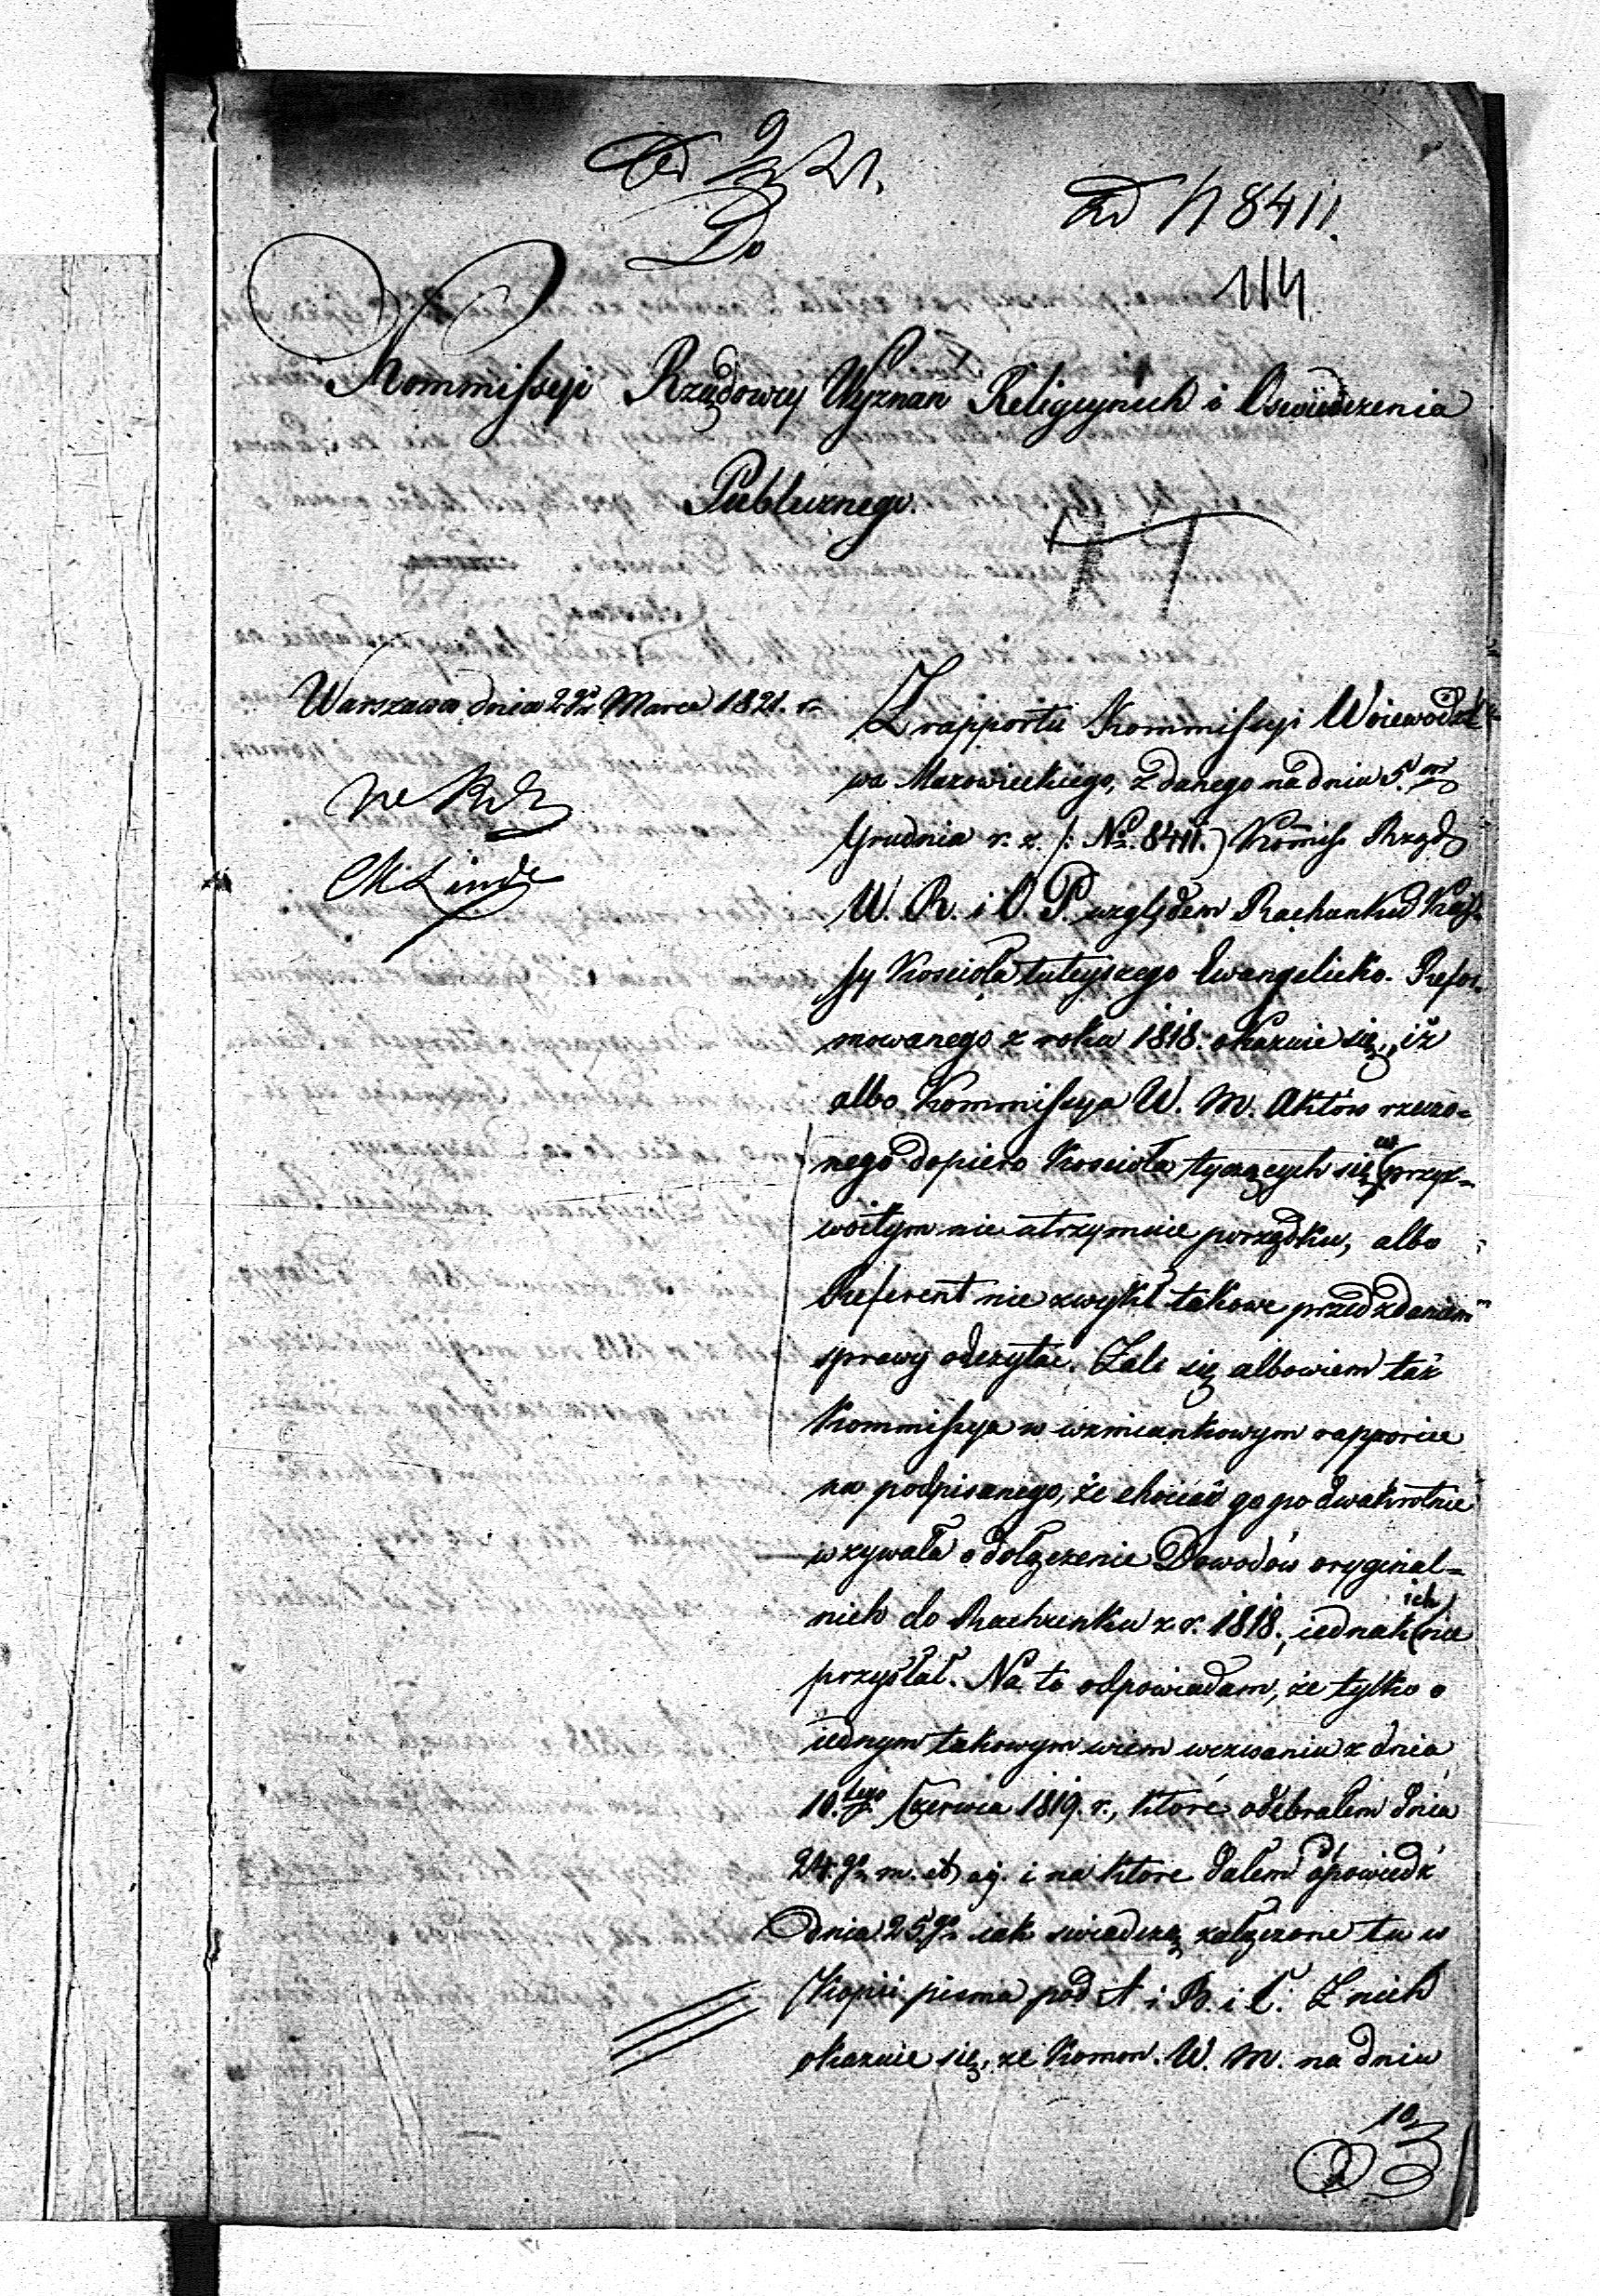 Do
N 8411.
114
Kommissyi Rządowey Wyznań Religiynych i Oswiecenia
Publicznego.
Warszawa dnia 2go Marca 1821. r.
Z rapportu Kommissyi Woiewodz-
wa Mazowieckiego, zdanego na dniu 5.
Grudnia r. z. /: No. 8411.) Komiss. Rząd
W. R. i O. P. względem Rachunku Kas-
sy Kosciola tuteyszego Ewangelicko-Refor-
mowanego z roku 1818. okazuie się, iż
albo Kommissya W. M. Aktów rzeczo-
nego dopiero Kościoła tyczących się w przyz-
woitym nie utrzymuie porządku, albo
Referent nie zwykł takowe przed zdaniem
sprawy odczytać. Żali się albowiem taż
Kommissya w wzmiankowym rapporcie
na podpisanego, że chociaż go po dwakrotnie
wzywała o dołączenie Dowodów oryginal-
nich do Rachunku z r. 1818., iednak ich nie
przysłał. Na to odpowiadam, że tylko o
iednym takowym wiem wezwaniu z dnia
10.tego Czerwca 1819. r., które odebrałem dnia
24.go m. et a. i na ktore dałem odpowiedź
dnia 25.go iak swiadczą załączone tu w
Kopii pisma pod A i B. i C. Z nich
okazuie się, że Komm. W. M. na dniu
10